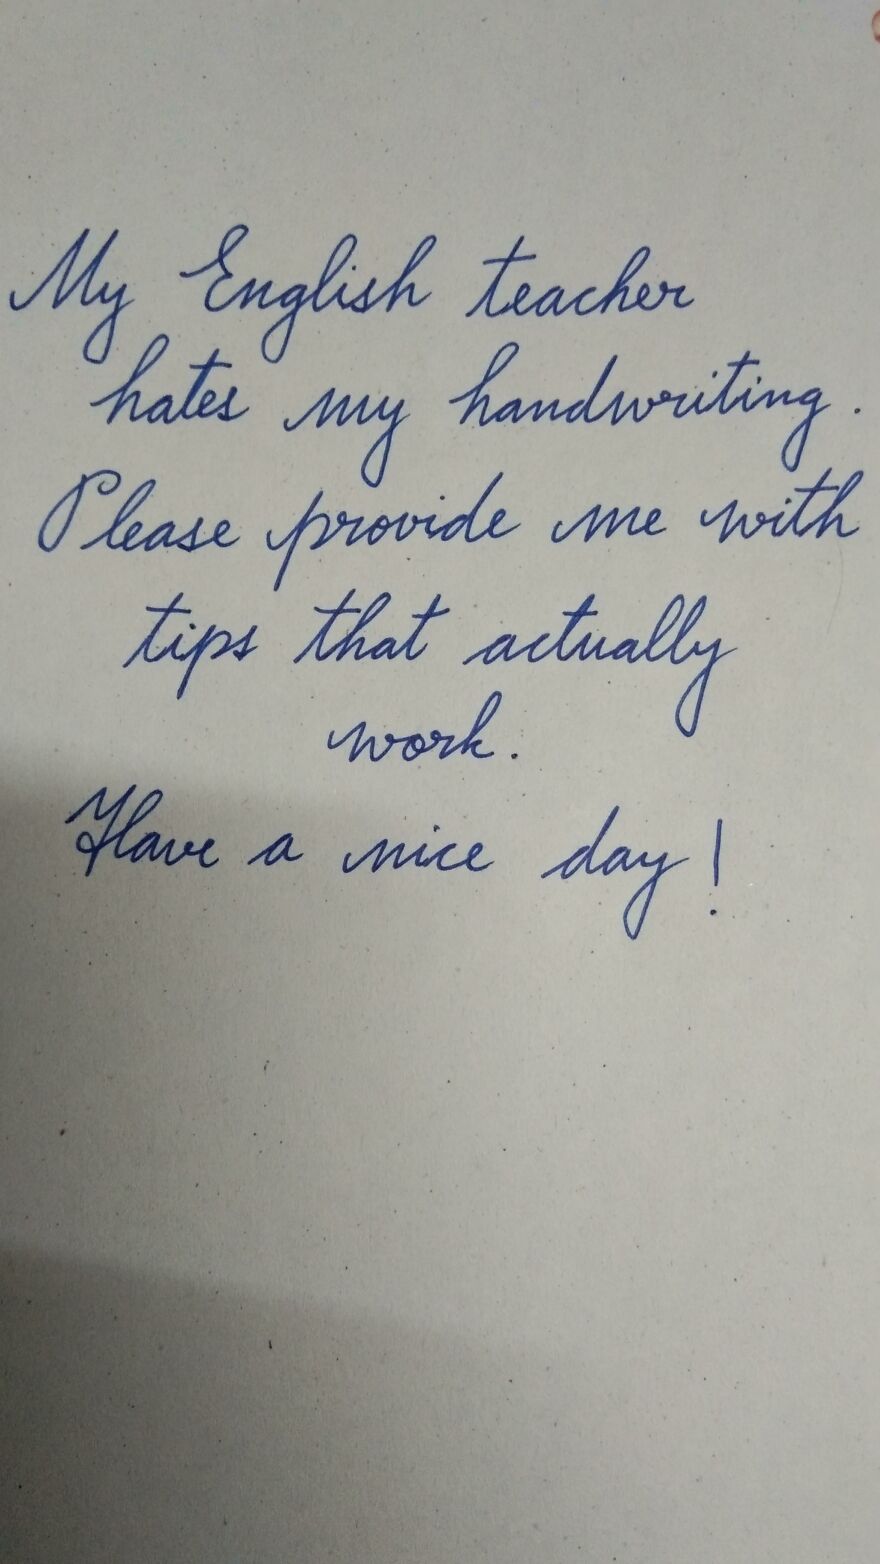 My English teacher
hates my handwriting.
Please provide me with
tips that actually
work.
Have a nice day!